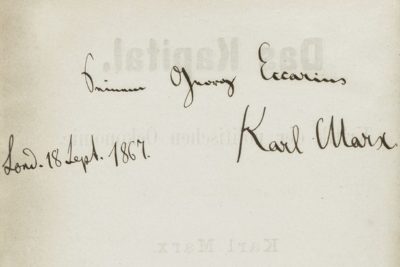 Das Kapital.
Seinem Georg Eccarius
politischen Oekonomie.
Lond. 18 Sept. 1867. Karl Marx
Karl Marx.